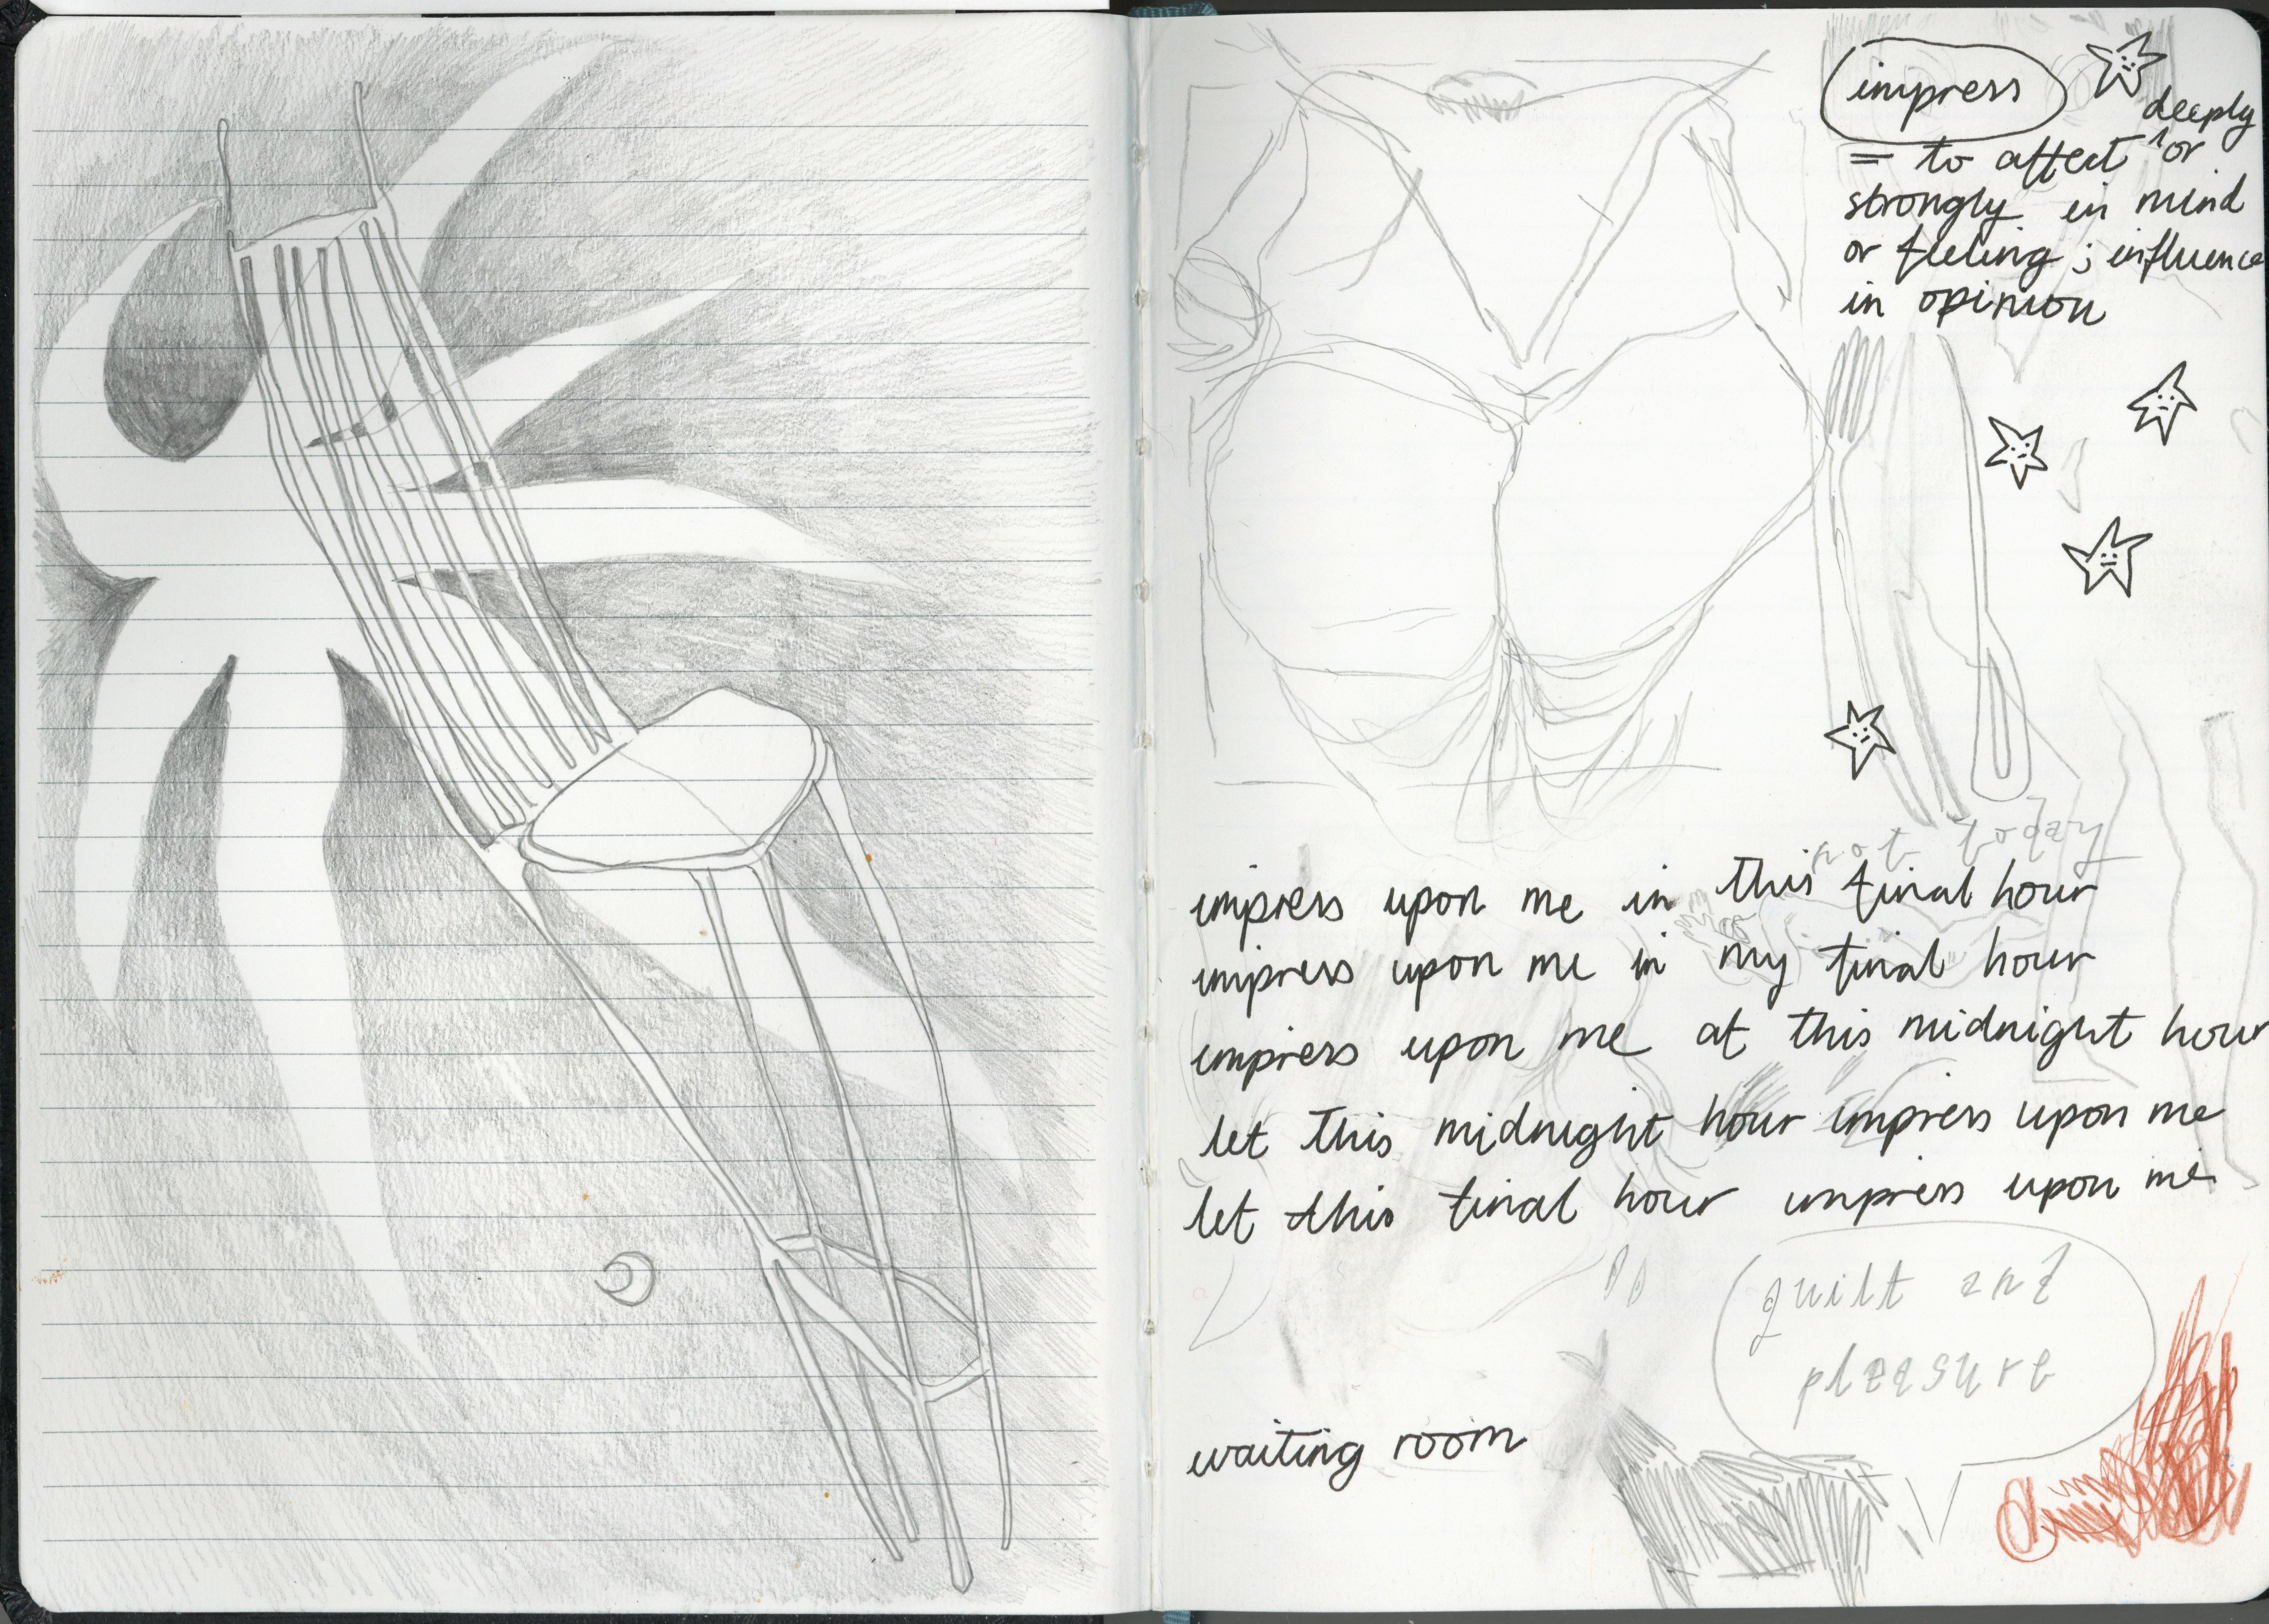 impress
deeply
= to affect ^ or
strongly in mind
or feeling ; influence
in opinion
not today
impress upon me in this final hour
impress upon me in my final hour
impress upon me at this midnight hour
let this midnight hour impress upon me
let this final hour impress upon me
guilt and
pleasure
waiting room